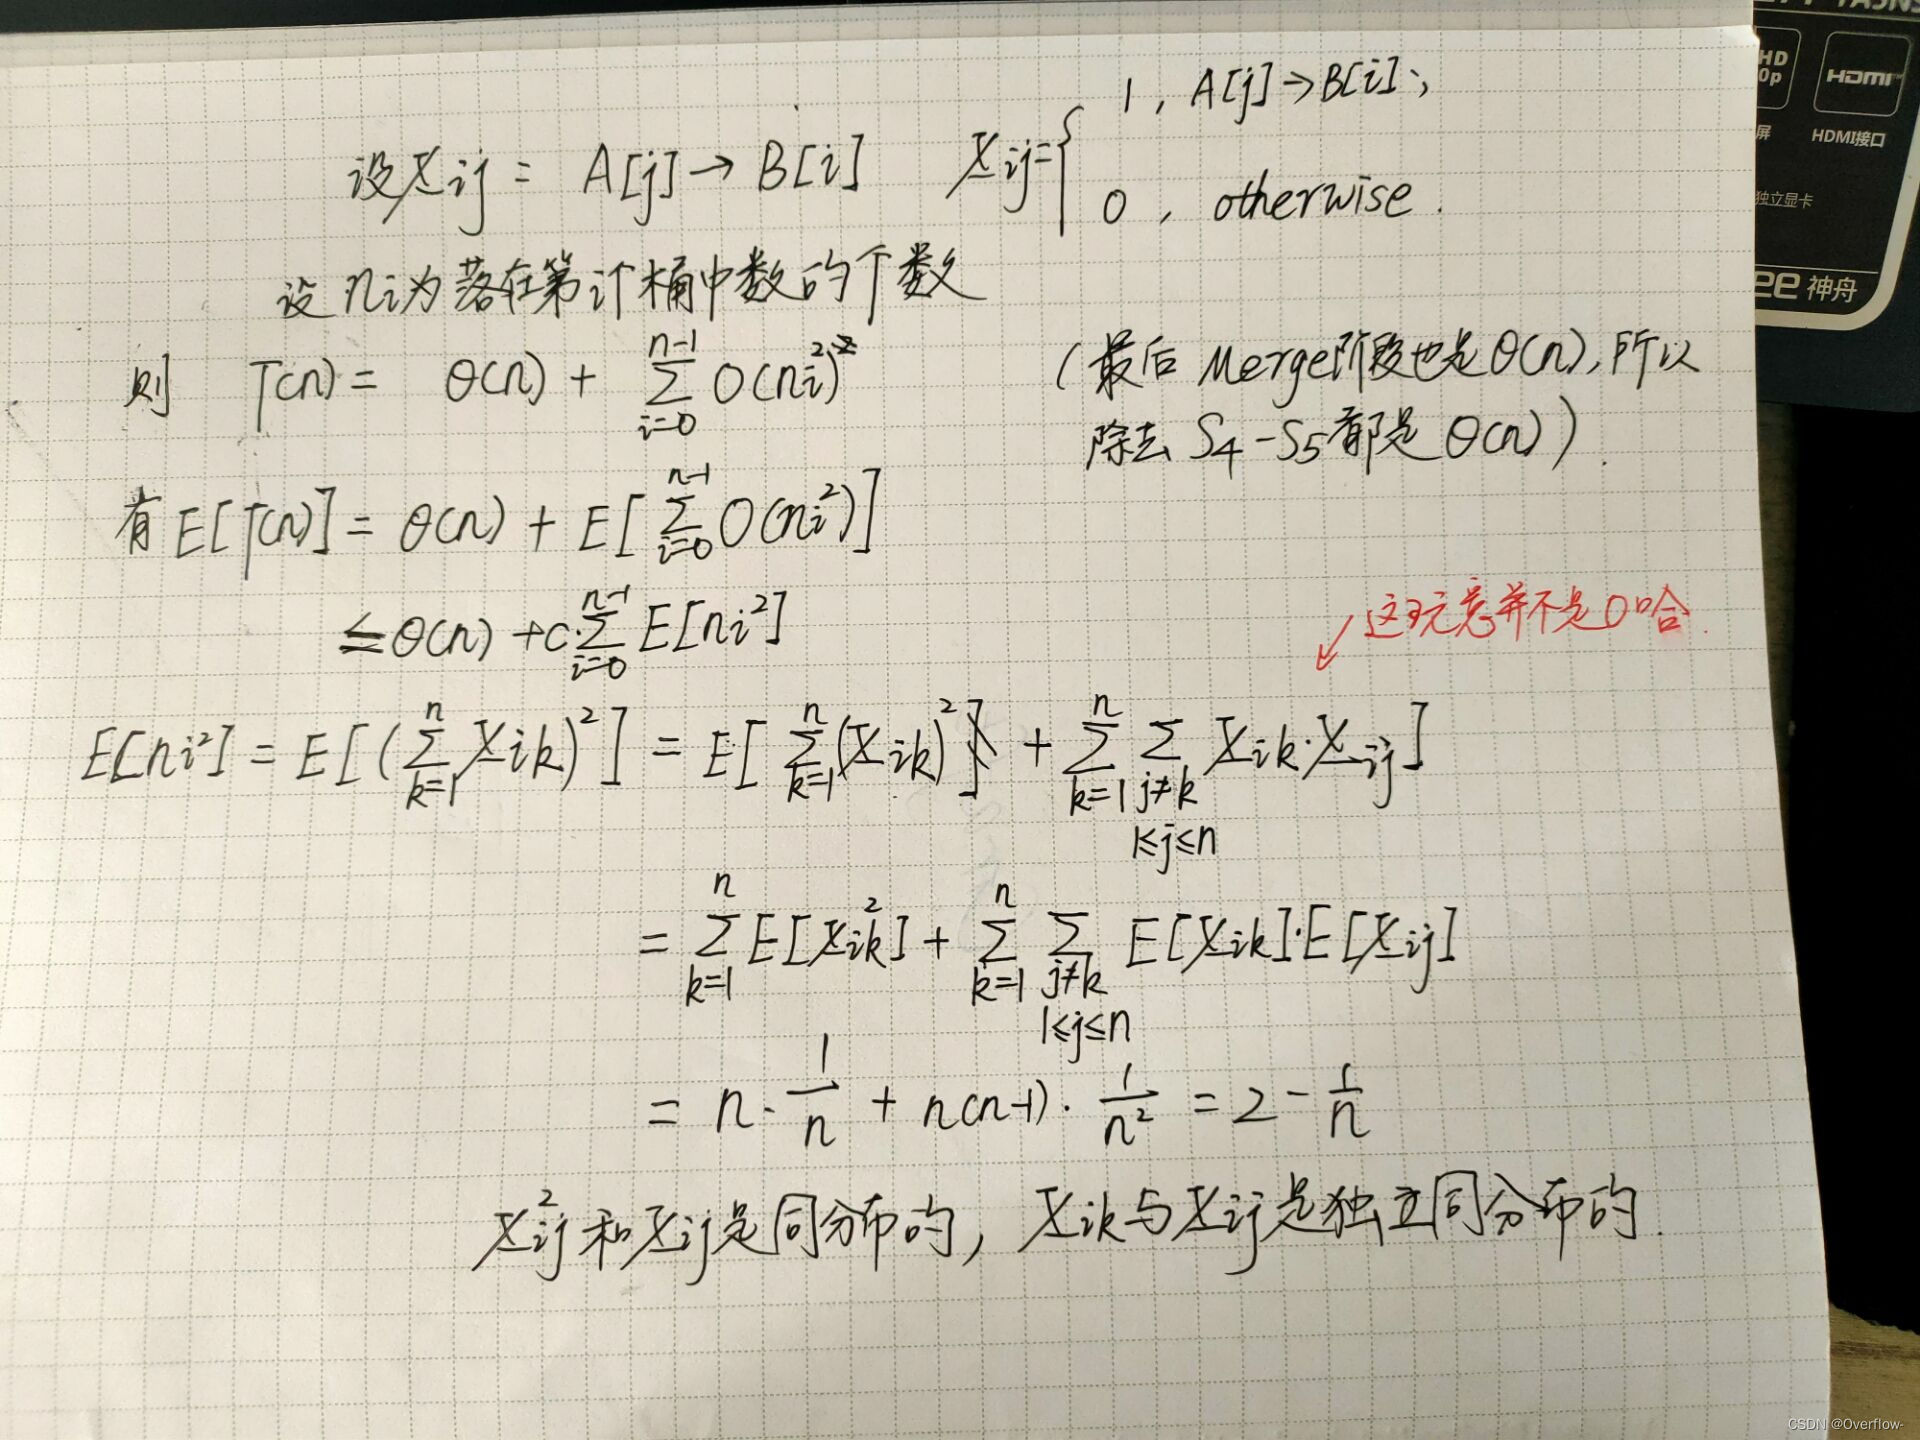 设 Xij = A[j] → B[i]    Xij = { 1 , A[j] → B[i] ;
0 , otherwise .
设 ni 为落在第 i 个桶中数的个数
则 T(n) = Θ(n) + ∑_{i=0}^{n-1} O(ni²)
(最后 Merge阶段也是 Θ(n), 所以
除去 S4 - S5 都是 Θ(n) ) .
有 E[T(n)] = Θ(n) + E[ ∑_{i=0}^{n-1} O(ni²) ]
≤ Θ(n) + c·∑_{i=0}^{n-1} E[ni²]
这玩意并不是0哈.
E[ni²] = E[ ( ∑_{k=1}^{n} Xik )² ] = E[ ∑_{k=1}^{n} (Xik)² + ∑_{k=1}^{n} ∑_{j≠k, 1≤j≤n} Xik·Xij ]
= ∑_{k=1}^{n} E[Xik²] + ∑_{k=1}^{n} ∑_{j≠k, 1≤j≤n} E[Xik]·E[Xij]
= n · 1/n + n(n-1) · 1/n² = 2 - 1/n
Xij² 和 Xij 是同分布的, Xik 与 Xij 是独立同分布的.
HD
0p
HDMI
屏
HDMI接口
独立显卡
ee 神舟
CSDN @Overflow-